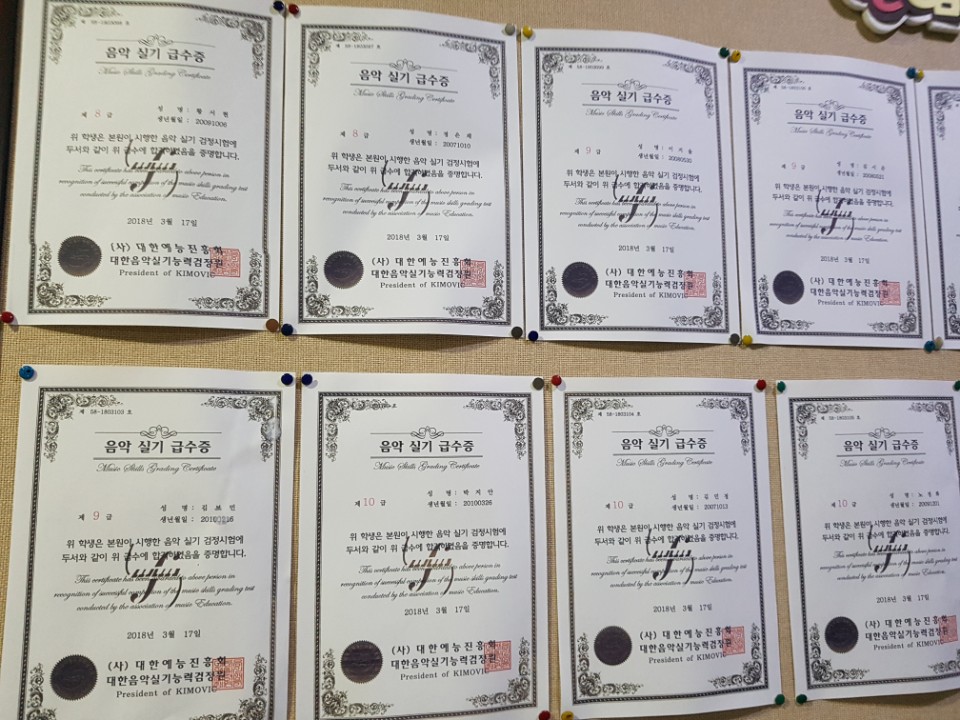 음악 실기 급수증
Music Skills Grading Certificate
제 8 급
성 명 : 황 서 현
생년월일 : 20091006
위 학생은 본원이 시행한 음악 실기 검정시험에
두서와 같이 위 급수에 합격하였음을 증명합니다.
This certificate has above person in
recognition of successful completion of the music skills grading test
conducted by the association of music Education.
2018년 3월 17일
(사) 대한예능진흥회
대한음악실기능력검정원
President of KIMOVIC
음악 실기 급수증
Music Skills Grading Certificate
제 8 급
성 명 : 정 은 채
생년월일 : 20071010
위 학생은 본원이 시행한 음악 실기 검정시험에
두서와 같이 위 급수에 합격하였음을 증명합니다.
This certificate has above person in
recognition of successful completion of the music skills grading test
conducted by the association of music Education.
2018년 3월 17일
(사) 대한예능진흥회
대한음악실기능력검정원
President of KIMOVIC
음악 실기 급수증
Music Skills Grading Certificate
제 9 급
성 명 :
생년월일 :
위 학생은 본원이 시행한 음악 실기 검정시험에
두서와 같이 위 급수에 합격하였음을 증명합니다.
This certificate has above person in
recognition of successful completion of the music skills grading test
conducted by the association of music Education.
2018년 3월 17일
(사) 대한예능진흥회
대한음악실기능력검정원
President of KIMOVIC
음악 실기 급수증
Music Skills Grading Certificate
제 9 급
성 명 :
생년월일 :
위 학생은 본원이 시행한 음악 실기 검정시험에
두서와 같이 위 급수에 합격하였음을 증명합니다.
This certificate has above person in
recognition of successful completion of the music skills grading test
conducted by the association of music Education.
2018년 3월 17일
(사) 대한예능진흥회
대한음악실기능력검정원
President of KIMOVIC
제 SR-1803103 호
음악 실기 급수증
Music Skills Grading Certificate
제 9 급
성 명 : 김 보 민
생년월일 :
위 학생은 본원이 시행한 음악 실기 검정시험에
두서와 같이 위 급수에 합격하였음을 증명합니다.
This certificate has above person in
recognition of successful completion of the music skills grading test
conducted by the association of music Education.
2018년 3월 17일
(사) 대한예능진흥회
대한음악실기능력검정원
President of KIMOVIC
음악 실기 급수증
Music Skills Grading Certificate
제 10 급
성 명 : 박 지 안
생년월일 : 20100326
위 학생은 본원이 시행한 음악 실기 검정시험에
두서와 같이 위 급수에 합격하였음을 증명합니다.
This certificate has above person in
recognition of successful completion of the music skills grading test
conducted by the association of music Education.
2018년 3월 17일
(사) 대한예능진흥회
대한음악실기능력검정원
President of KIMOVIC
제 SR-1803104 호
음악 실기 급수증
Music Skills Grading Certificate
제 10 급
성 명 : 김 민 정
생년월일 : 20071013
위 학생은 본원이 시행한 음악 실기 검정시험에
두서와 같이 위 급수에 합격하였음을 증명합니다.
This certificate has above person in
recognition of successful completion of the music skills grading test
conducted by the association of music Education.
2018년 3월 17일
(사) 대한예능진흥회
대한음악실기능력검정원
President of KIMOVIC
음악 실기 급수증
Music Skills Grading Certificate
제 10 급
성 명 :
생년월일 :
위 학생은 본원이 시행한 음악 실기 검정시험에
두서와 같이 위 급수에 합격하였음을 증명합니다.
This certificate has above person in
recognition of successful completion of the music skills grading test
conducted by the association of music Education.
2018년 3월 17일
(사) 대한예능진흥회
대한음악실기능력검정원
President of KIMOVIC